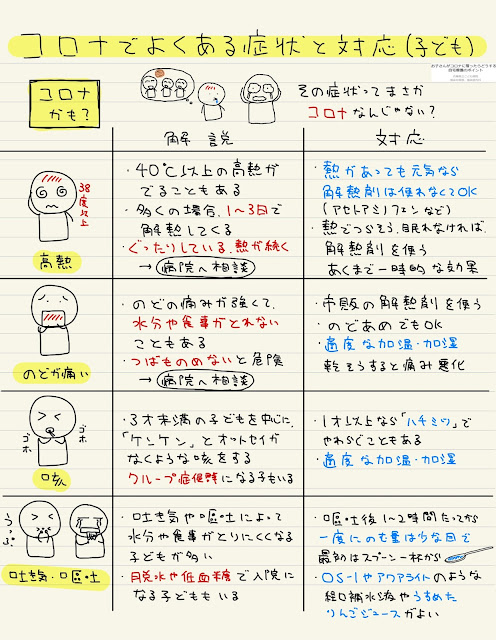 コロナでよくある症状と対応(子ども)
お子さんがコロナに罹ったらどうする
自宅療養のポイント
コロナ
かも?
その症状ってまさか
コロナなんじゃない?
解説
対応
38度以上
高熱
・40℃以上の高熱が
でることもある
・多くの場合、1〜3日で
解熱してくる
・ぐったりしている、熱が続く
→病院へ相談
・熱があっても元気なら
解熱剤は使わなくてOK
(アセトアミノフェンなど)
・熱でつらそう、眠れなければ、
解熱剤を使う
あくまで一時的な効果
のどが痛い
・のどの痛みが強くて、
水分や食事がとれない
こともある
・つばものめないと危険
→病院へ相談
・市販の解熱剤を使う
・のどあめでもOK
・適度な加温・加湿
乾そうすると痛み悪化
ゴホ
ゴホ
咳
・3才未満の子どもを中心に、
「ケンケン」とオットセイが
なくような咳をする
クループ症候群になる子もいる
・1才以上なら「ハチミツ」で
やわらぐこともある
・適度な加温・加湿
うっぷ
吐き気・嘔吐
・吐き気や嘔吐によって
水分や食事がとりにくくなる
子どもが多い
・脱水や低血糖で入院に
なる子どももいる
・嘔吐後1〜2時間たってから
一度にのむ量は少な目で
最初はスプーン一杯から
・OS-1やアクアライトのような
経口補水液やうすめた
りんごジュースがよい